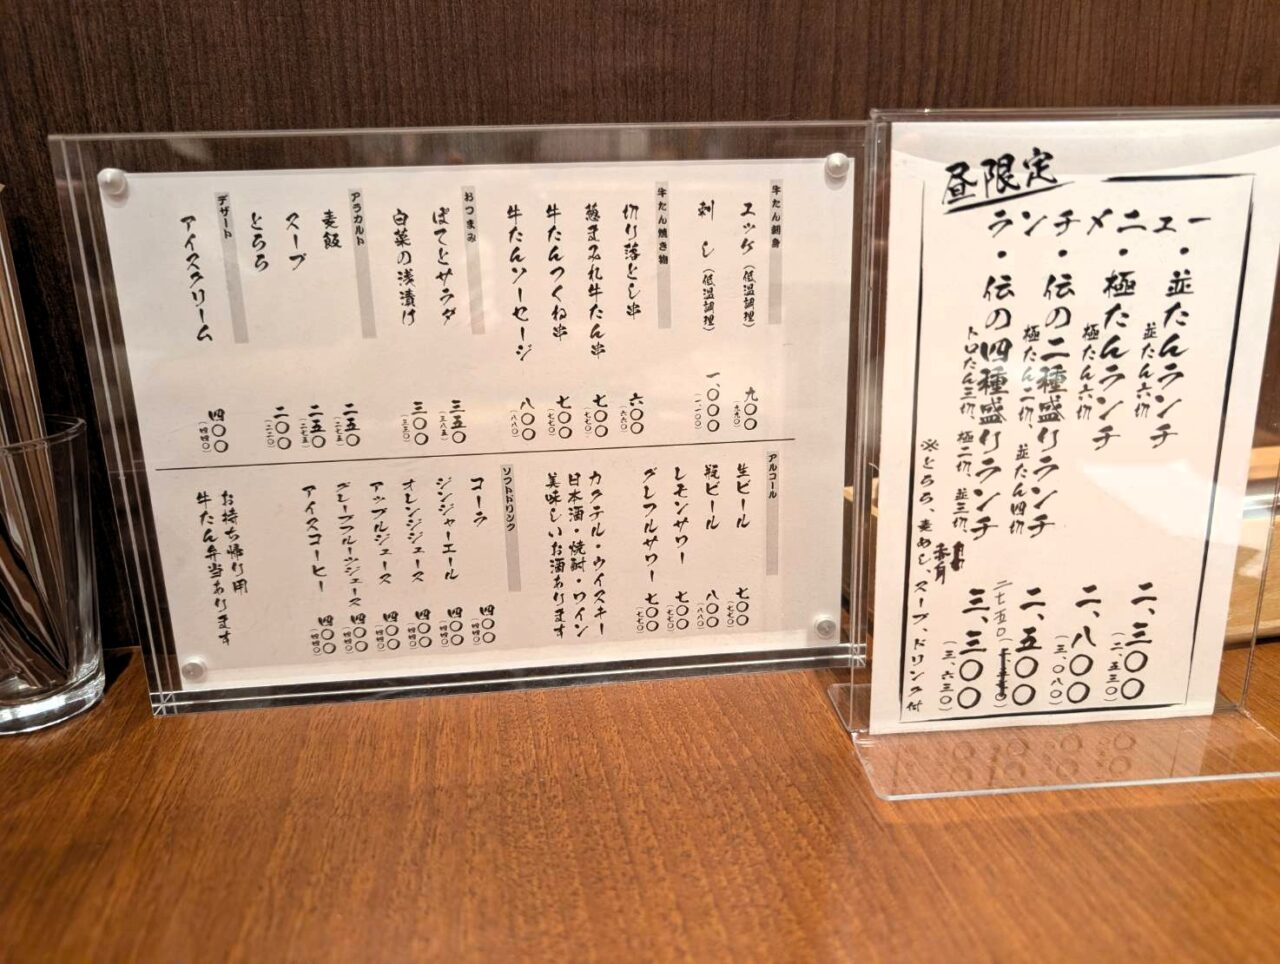 牛たん刺身
ユッケ（低温調理） 九〇〇（九九〇）
刺し（低温調理） 一、〇〇〇（一一〇〇）
牛たん焼き物
切り落とし串 六〇〇（六六〇）
葱まみれ牛たん串 七〇〇（七七〇）
牛たんつくね串 七〇〇（七七〇）
牛たんソーセージ 八〇〇（八八〇）
おつまみ
ぽてとサラダ 三五〇（三八五）
白菜の浅漬け 三〇〇（三三〇）
アラカルト
麦飯 二五〇（二七五）
スープ 二五〇（二七五）
とろろ 二〇〇（二二〇）
デザート
アイスクリーム 四〇〇（四四〇）
アルコール
生ビール 七〇〇（七七〇）
瓶ビール 八〇〇（八八〇）
レモンサワー 七〇〇（七七〇）
グレフルサワー 七〇〇（七七〇）
カクテル・ウイスキー
日本酒・焼酎・ワイン
美味しいお酒あります
ソフトドリンク
コーラ 四〇〇（四四〇）
ジンジャーエール 四〇〇（四四〇）
オレンジジュース 四〇〇（四四〇）
アップルジュース 四〇〇（四四〇）
グレープフルーツジュース 四〇〇（四四〇）
アイスコーヒー 四〇〇（四四〇）
お持ち帰り用
牛たん弁当あります
昼限定
ランチメニュー
・並たんランチ 二、三〇〇（二、五三〇）
並たん六切
・極たんランチ 二、八〇〇（三、〇八〇）
極たん六切
・伝の二種盛りランチ 二、五〇〇
極たん二切、並たん四切 二七五〇
・伝の四種盛りランチ 三、三〇〇（三、六三〇）
トロたん三切、極二切、並三切、
※とろろ、麦めし、スープ、ドリンク付